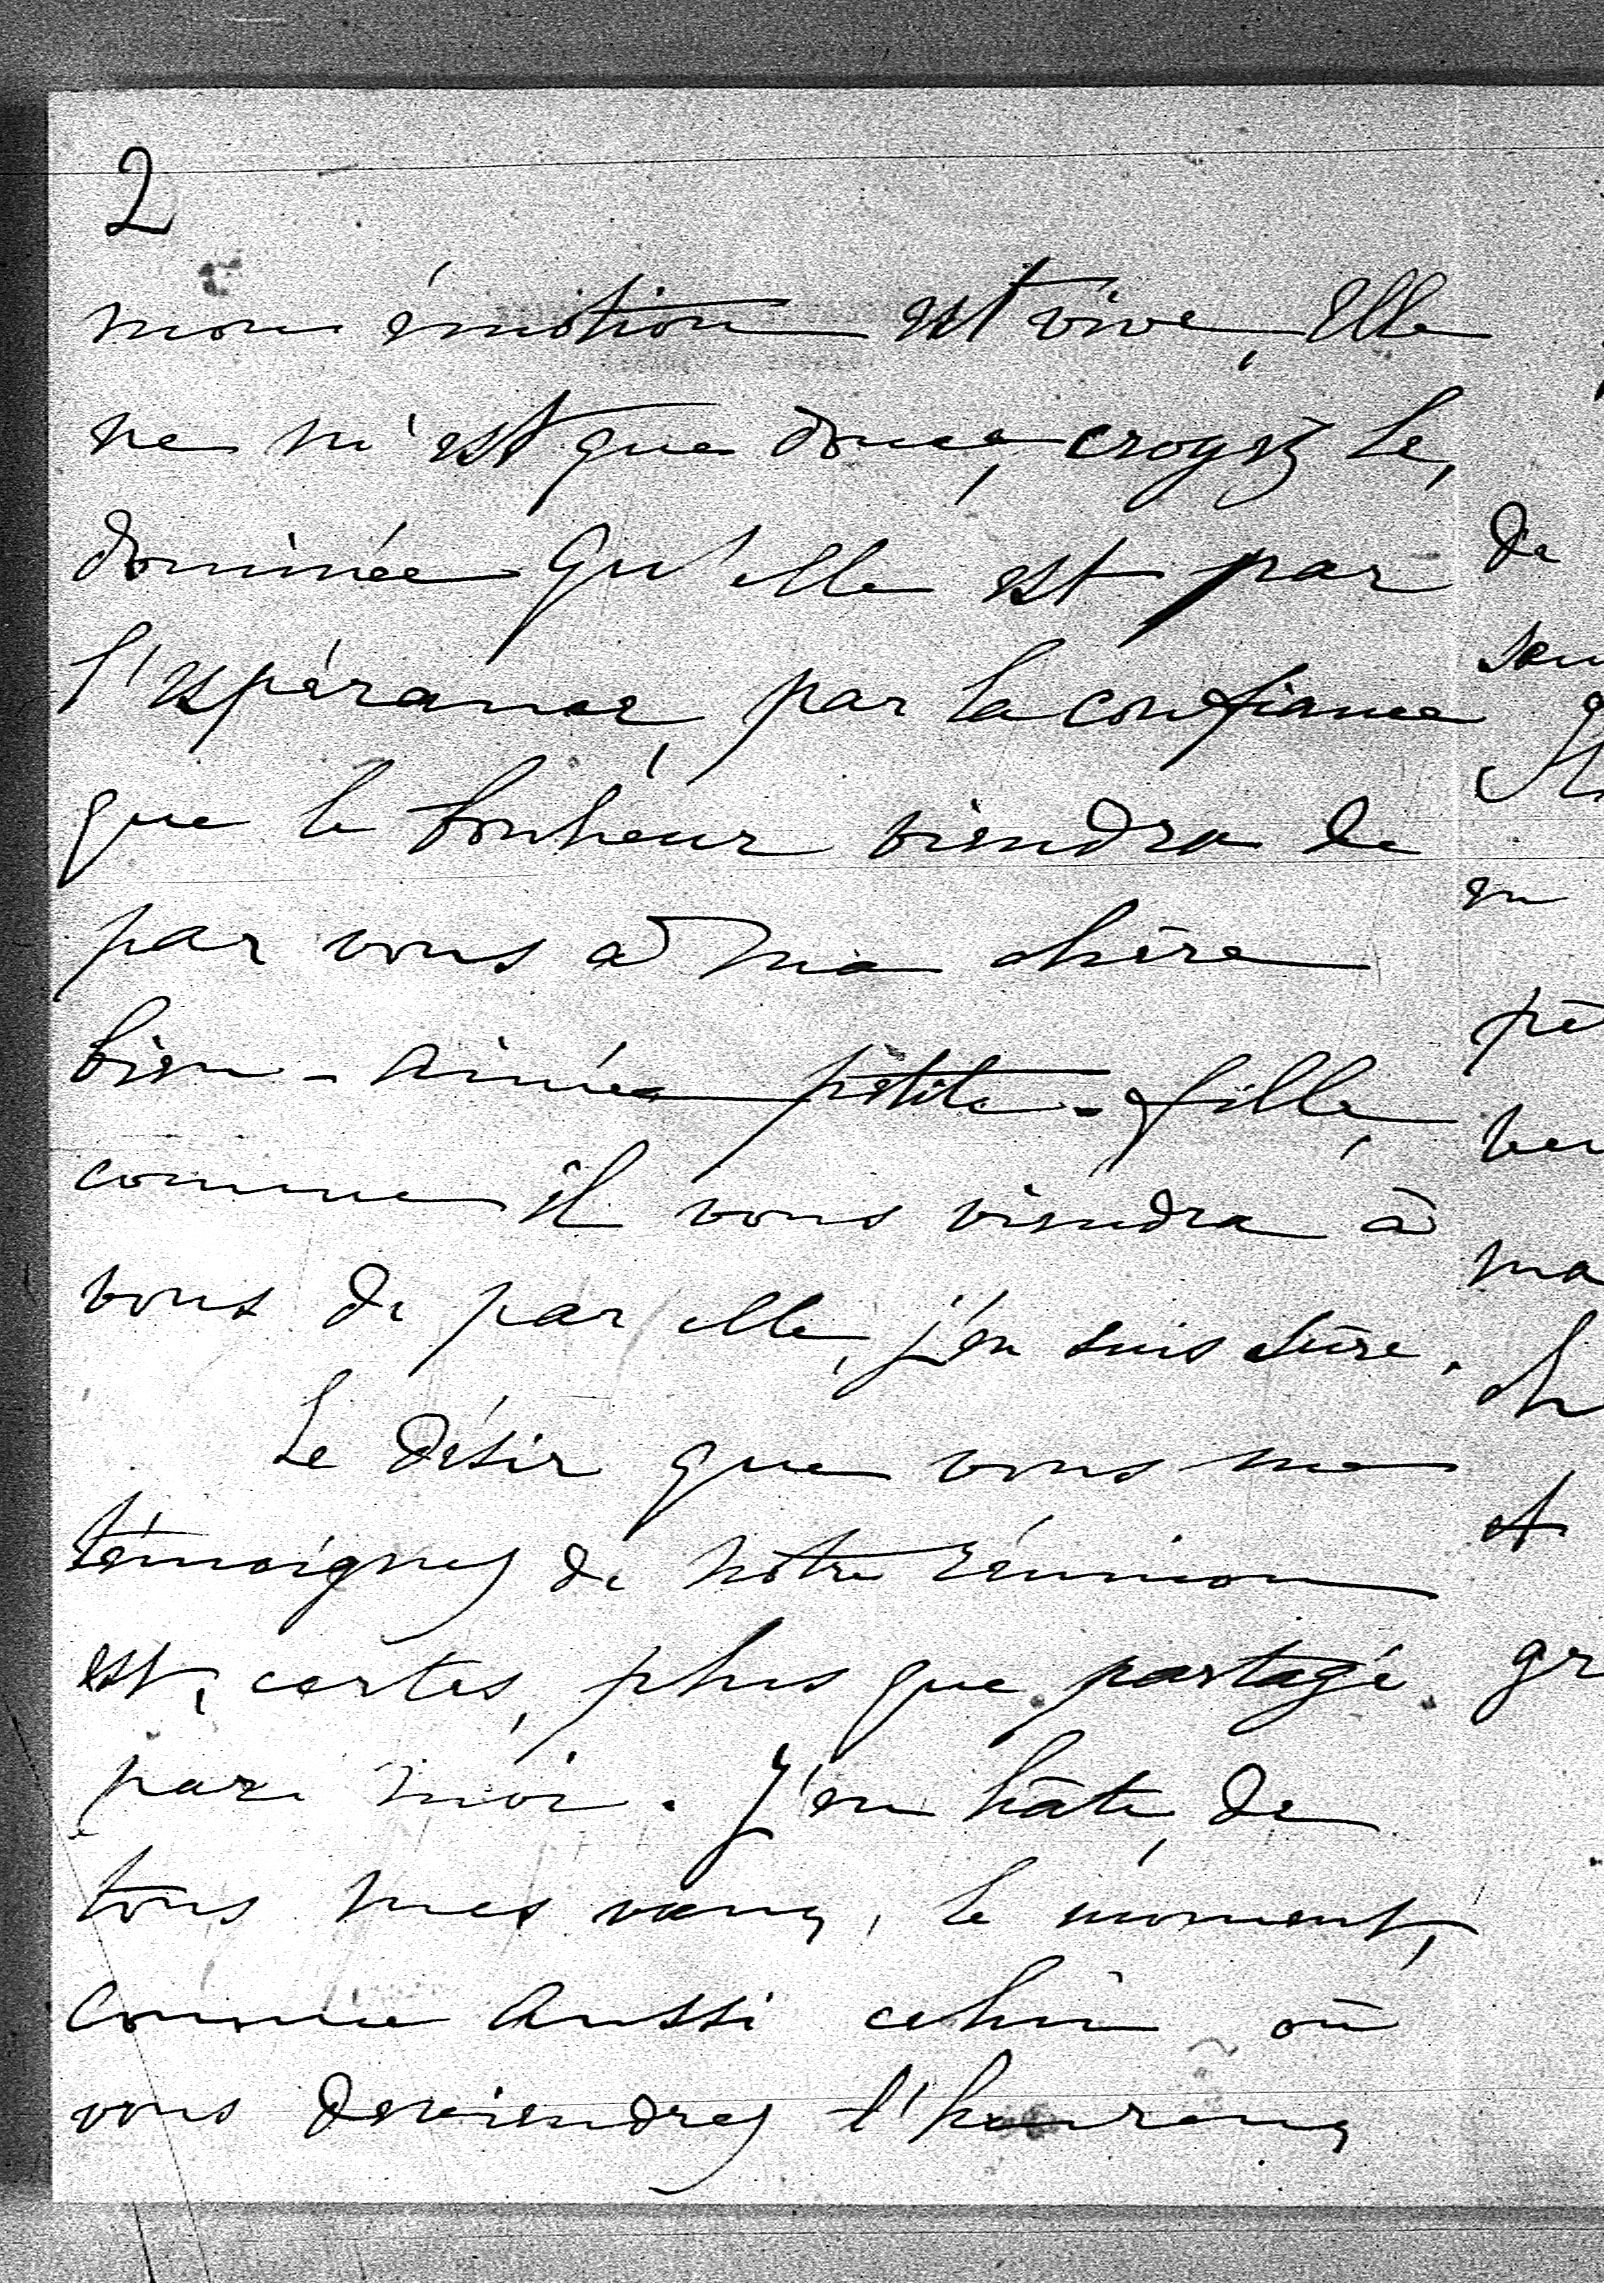 2
mon émotion est vive, Elle
ne m'est que douce, croyez le,
dominée qu'elle est par
l'espérance, par la confiance
que le bonheur viendra de
par vous à ma chère
bien-aimée petite-fille,
comme il vous viendra à
vous de par elle, j'en suis sûre.
Le désir que vous me
témoignez de notre réunion
est, certes, plus que partagé
par moi. J'en hâte, de
tous mes vœux, le moment,
comme aussi celui où
vous deviendrez l'heureux
de
en
et